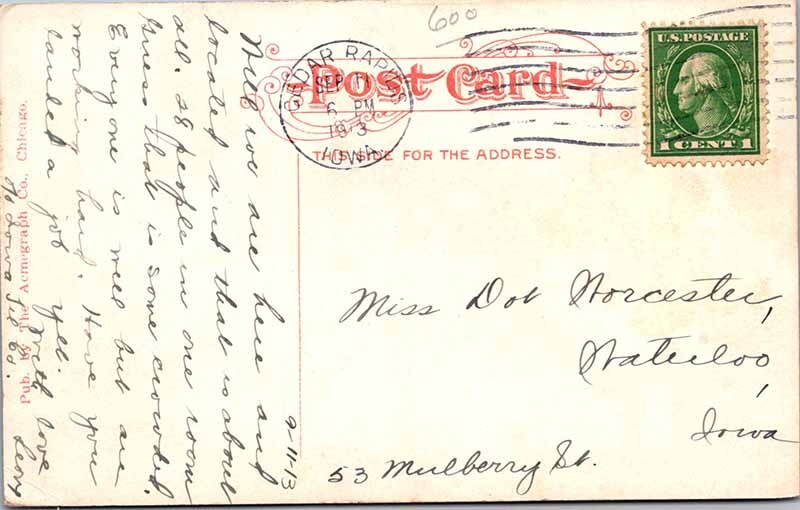 600
Post Card
CEDAR RAPIDS
SEP 11
6 PM
1913
IOWA
U.S. POSTAGE
1 CENT 1
THIS SIDE FOR THE ADDRESS.
Miss Dot Worcester,
Waterloo,
Iowa
53 Mulberry St.
9-11-13
Well we are here and
located and that is about
all. 28 people in one room
Guess that is some crowded.
Everyone is well but are
working hard. Have you
landed a job yet.
With love
Leora
Pub. by The Acmegraph Co., Chicago.